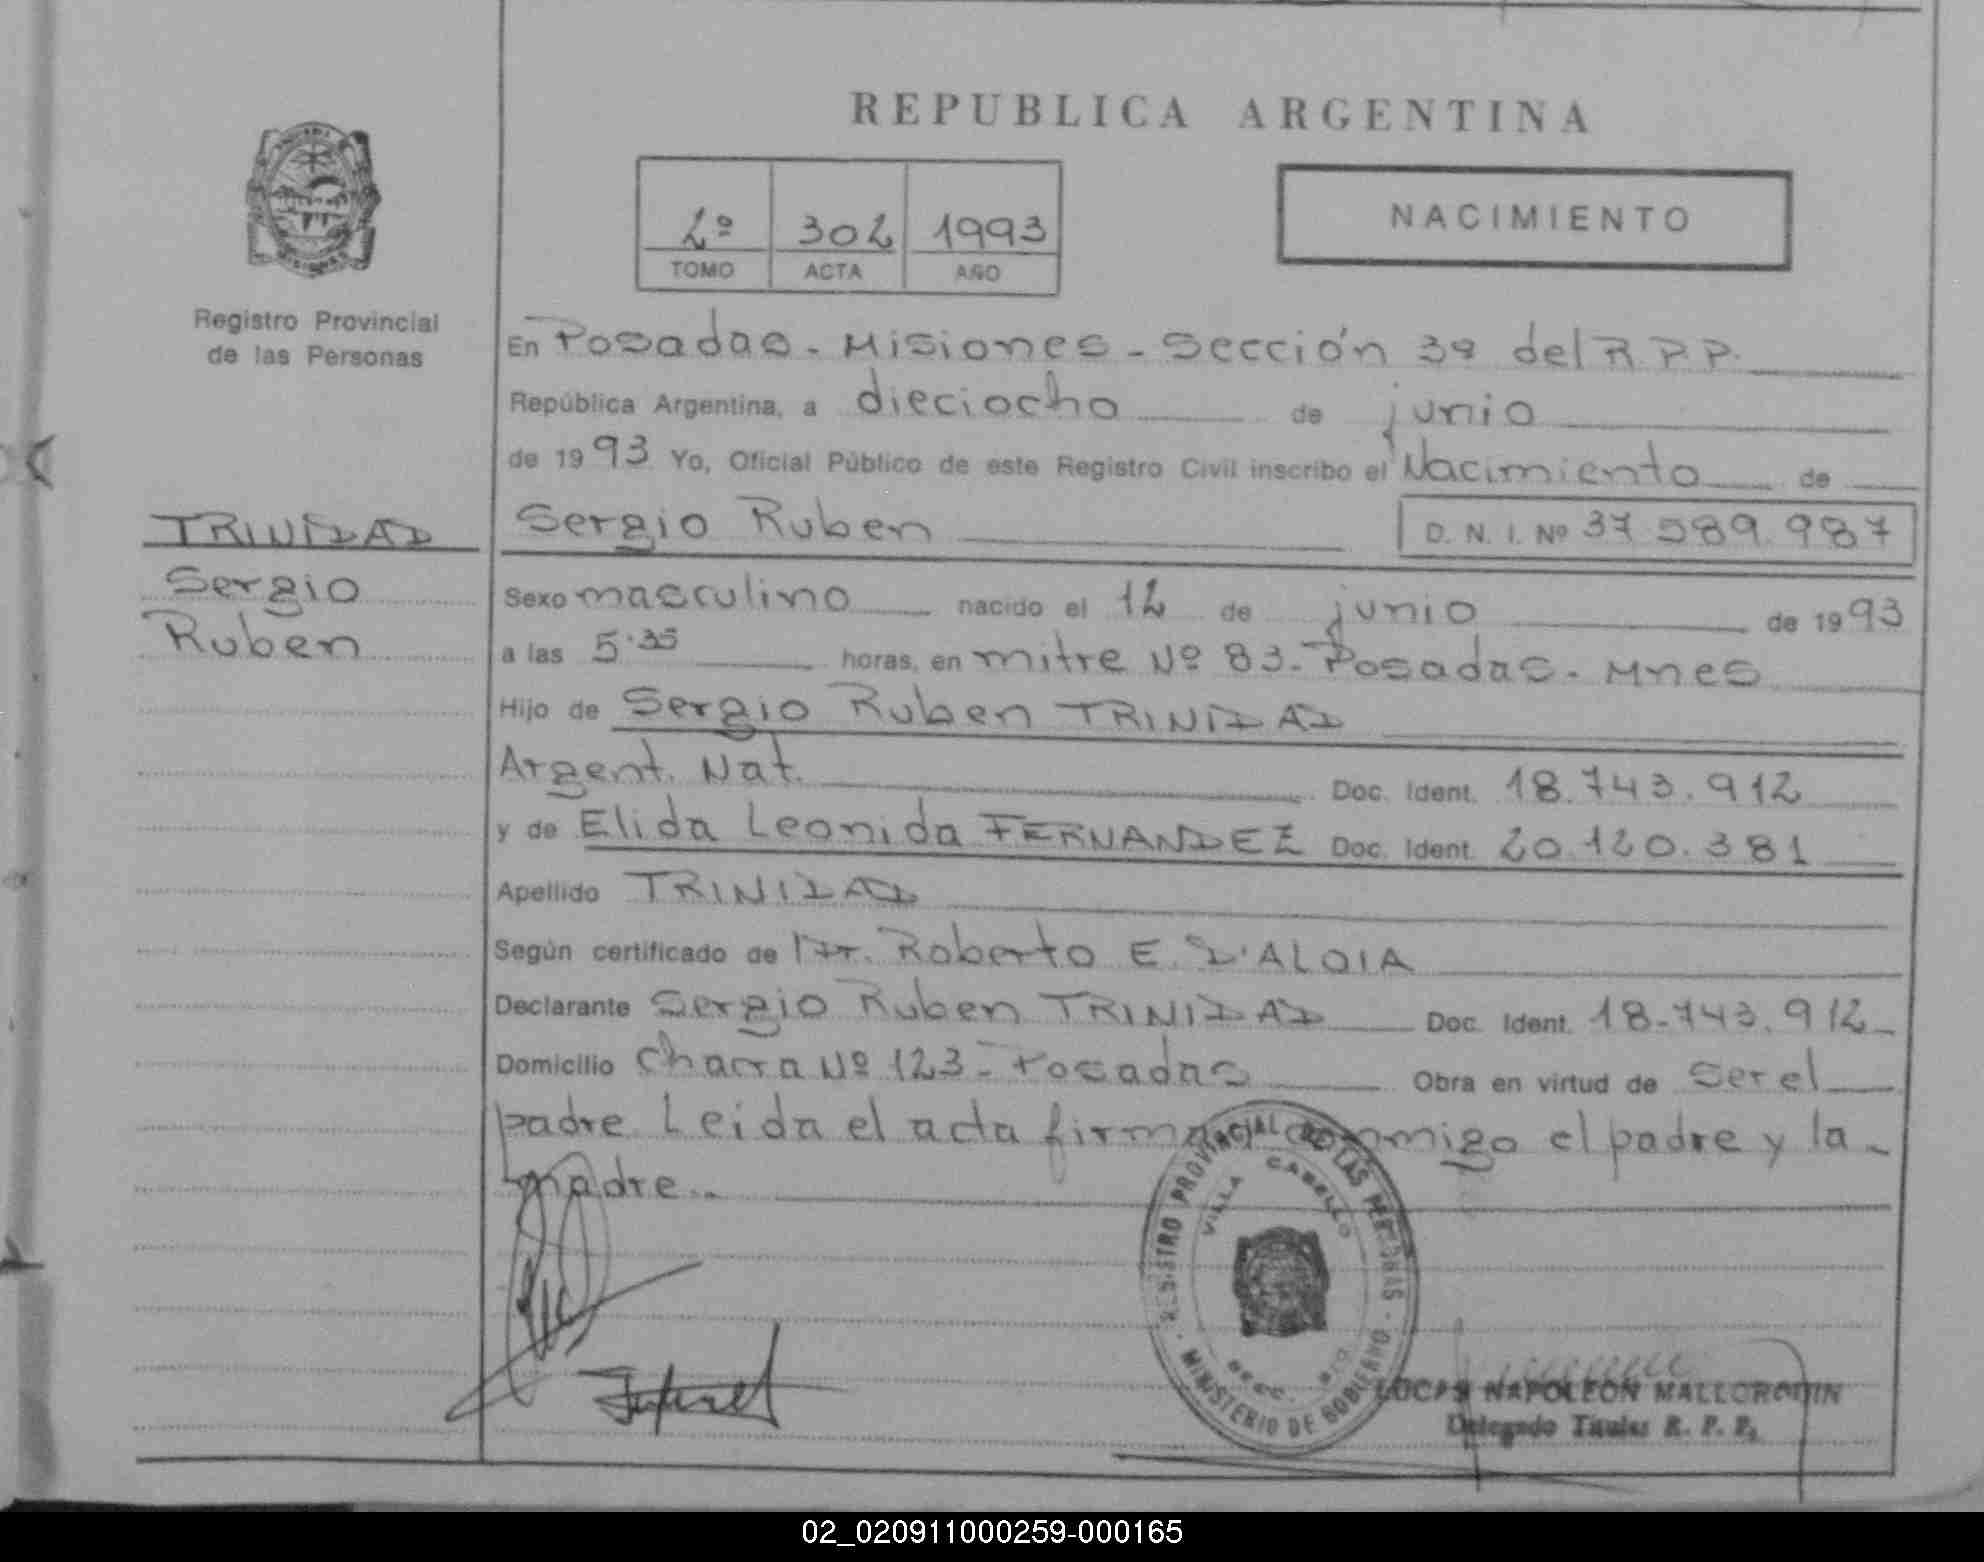 REPUBLICA ARGENTINA
2º 302 1993
TOMO ACTA AÑO
NACIMIENTO
Registro Provincial
de las Personas
TRINIDAD
Sergio
Ruben
En Posadas - Misiones - Sección 3ª del R.P.P.
República Argentina, a dieciocho de junio
de 1993 Yo, Oficial Público de este Registro Civil inscribo el Nacimiento de
Sergio Ruben D. N. I. Nº 37.589.987
Sexo masculino nacido el 12 de junio de 1993
a las 5.35 horas, en mitre Nº 83 - Posadas - Mnes
Hijo de Sergio Ruben TRINIDAD
Argent. Nat. Doc. Ident. 18.743.912
y de Elida Leonida FERNANDEZ Doc. Ident. 20.120.381
Apellido TRINIDAD
Según certificado de Dr. Roberto E. D'ALOIA
Declarante Sergio Ruben TRINIDAD Doc. Ident. 18.743.912
Domicilio Chacra Nº 123 - Posadas Obra en virtud de ser el
padre. Leida el acta firman conmigo el padre y la
madre..
REGISTRO PROVINCIAL DE LAS PERSONAS
VILLA CABELLO
MINISTERIO DE GOBIERNO
LUCAS NAPOLEON MALLORQUIN
Delegado Titular R. P. P.
02_020911000259-000165